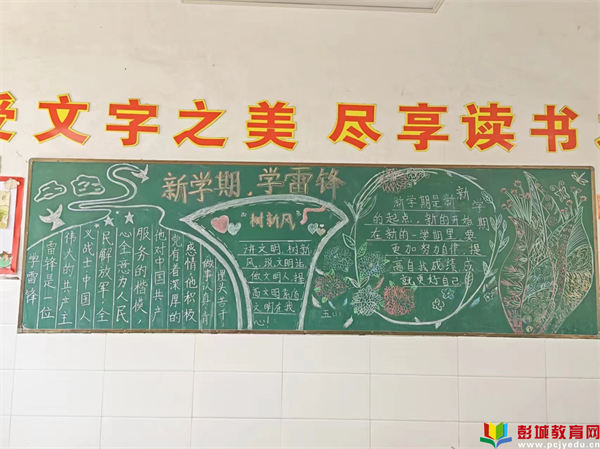 受文字之美 尽享读书
新学期，学雷锋
学雷锋
雷锋是一位
伟大的共产主
义战士中国人
民解放军全
心全意为人民
服务的楷模，
他对中国共产
党有着深厚的
感情他积极
做事认真肯
埋头苦干
“树新风”
讲文明树新
风，说文明话
做文明人提
高文明素质
文明在我
心！
新学期
新学期是新
的起点，新的开始
在新的一学期里要
更加努力自律，提
高自我成绩
就更好自己
彭城教育网
www.pcjyedu.cn